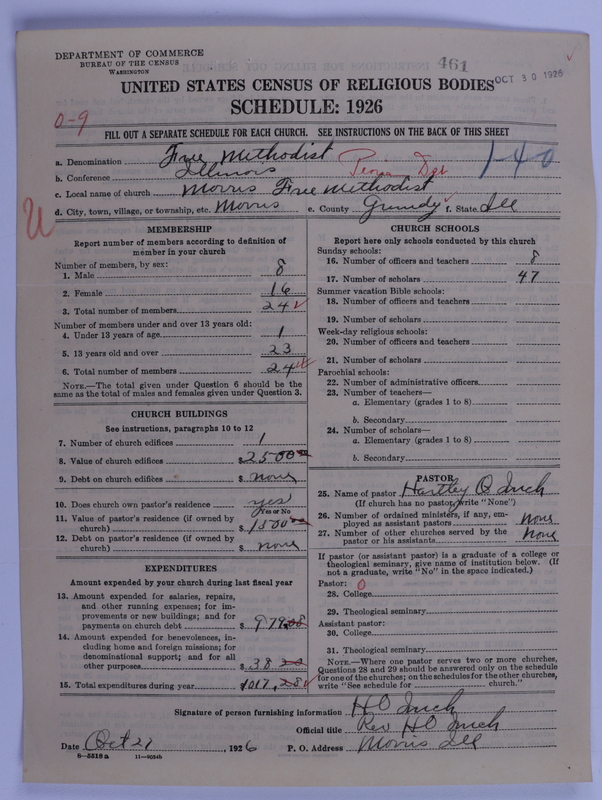 DEPARTMENT OF COMMERCE
BUREAU OF THE CENSUS
WASHINGTON
461
OCT 30 1926
UNITED STATES CENSUS OF RELIGIOUS BODIES
SCHEDULE: 1926
0-9
FILL OUT A SEPARATE SCHEDULE FOR EACH CHURCH. SEE INSTRUCTIONS ON THE BACK OF THIS SHEET
a. Denomination Free Methodist
1-40
b. Conference Illinois
c. Local name of church Morris Free Methodist
d. City, town, village, or township, etc. Morris e. County Grundy f. State Ill
MEMBERSHIP
Report number of members according to definition of member in your church
Number of members, by sex:
1. Male 8
2. Female 16
3. Total number of members 24
Number of members under and over 13 years old:
4. Under 13 years of age 1
5. 13 years old and over 23
6. Total number of members 24
NOTE.—The total given under Question 6 should be the
same as the total of males and females given under Question 3.
CHURCH BUILDINGS
See instructions, paragraphs 10 to 12
7. Number of church edifices 1
8. Value of church edifices $2500
9. Debt on church edifices $ none
10. Does church own pastor's residence yes
Yes or No
11. Value of pastor's residence (if owned by
church) $1500
12. Debt on pastor's residence (if owned by
church) $ none
EXPENDITURES
Amount expended by your church during last fiscal year
13. Amount expended for salaries, repairs,
and other running expenses; for im-
provements or new buildings; and for
payments on church debt $ 979.08
14. Amount expended for benevolences, in-
cluding home and foreign missions; for
denominational support; and for all
other purposes $ 38 20
15. Total expenditures during year 1017.28
CHURCH SCHOOLS
Report here only schools conducted by this church
Sunday schools:
16. Number of officers and teachers 8
17. Number of scholars 47
Summer vacation Bible schools:
18. Number of officers and teachers
19. Number of scholars
Week-day religious schools:
20. Number of officers and teachers
21. Number of scholars
Parochial schools:
22. Number of administrative officers
23. Number of teachers—
a. Elementary (grades 1 to 8)
b. Secondary
24. Number of scholars—
a. Elementary (grades 1 to 8)
b. Secondary
PASTOR
25. Name of pastor Hartley O Inch
(If church has no pastor, write "None")
26. Number of ordained ministers, if any, em-
ployed as assistant pastors none
27. Number of other churches served by the
pastor or his assistants none
If pastor (or assistant pastor) is a graduate of a college or
theological seminary, give name of institution below. (If
not a graduate, write "No" in the space indicated.)
Pastor: 0
28. College
29. Theological seminary
Assistant pastor:
30. College
31. Theological seminary
NOTE.—Where one pastor serves two or more churches,
Questions 28 and 29 should be answered only on the schedule
for one of the churches; on the schedules for the other churches,
write "See schedule for church."
Signature of person furnishing information H O Inch
Official title Rev H O Inch
Date Oct 27, 1926 P. O. Address Morris Ill
8-5518 a 11-9024b